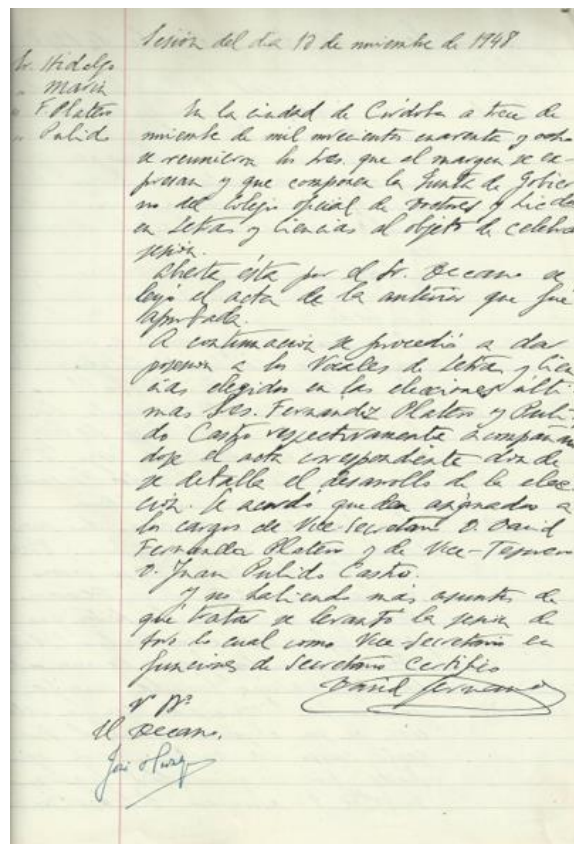 Sesión del dia 13 de noviembre de 1948
Sr. Hidalgo
" Marin
" F. Platero
" Pulido
En la ciudad de Córdoba a trece de
noviembre de mil novecientos cuarenta y ocho
se reunieron los Sres. que al margen se ex-
presan y que componen la Junta de Gobier
no del Colegio oficial de Doctores y Licdos
en Letras y Ciencias al objeto de celebrar
sesión.
Abierta ésta por el Sr. Decano se
leyó el acta de la anterior que fué
aprobada.
A continuación se procedió a dar
posesion a los Vocales de Letras y Cien
cias elegidos en las elecciones ulti
mas Sres. Fernandez Platero y Puli-
do Castro respectivamente acompañan
dose el acta correspondiente donde
se detalla el desarrollo de la elec-
ción. Se acordó quedan asignados a
los cargos de Vice-Secretario D. David
Fernandez Platero y de Vice-Tesorero
D. Juan Pulido Castro.
Y no habiendo más asuntos de
que tratar se levantó la sesion de
todo lo cual como Vice-Secretario en
funciones de Secretario Certifico
David Fernandez
Vº Bº
El Decano,
José